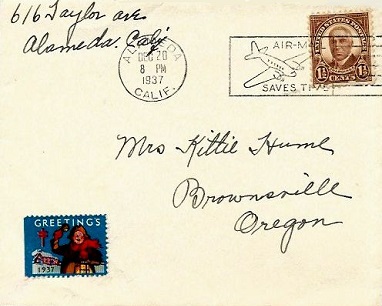 616 Taylor ave
Alameda. Calif
ALAMEDA
DEC 20
8 PM
1937
CALIF.
AIR-M
SAVES TI
UNITED STATES POSTAGE
1½ CENTS 1½
Mrs Kittie Hume
Brownsville
Oregon
GREETINGS
1937